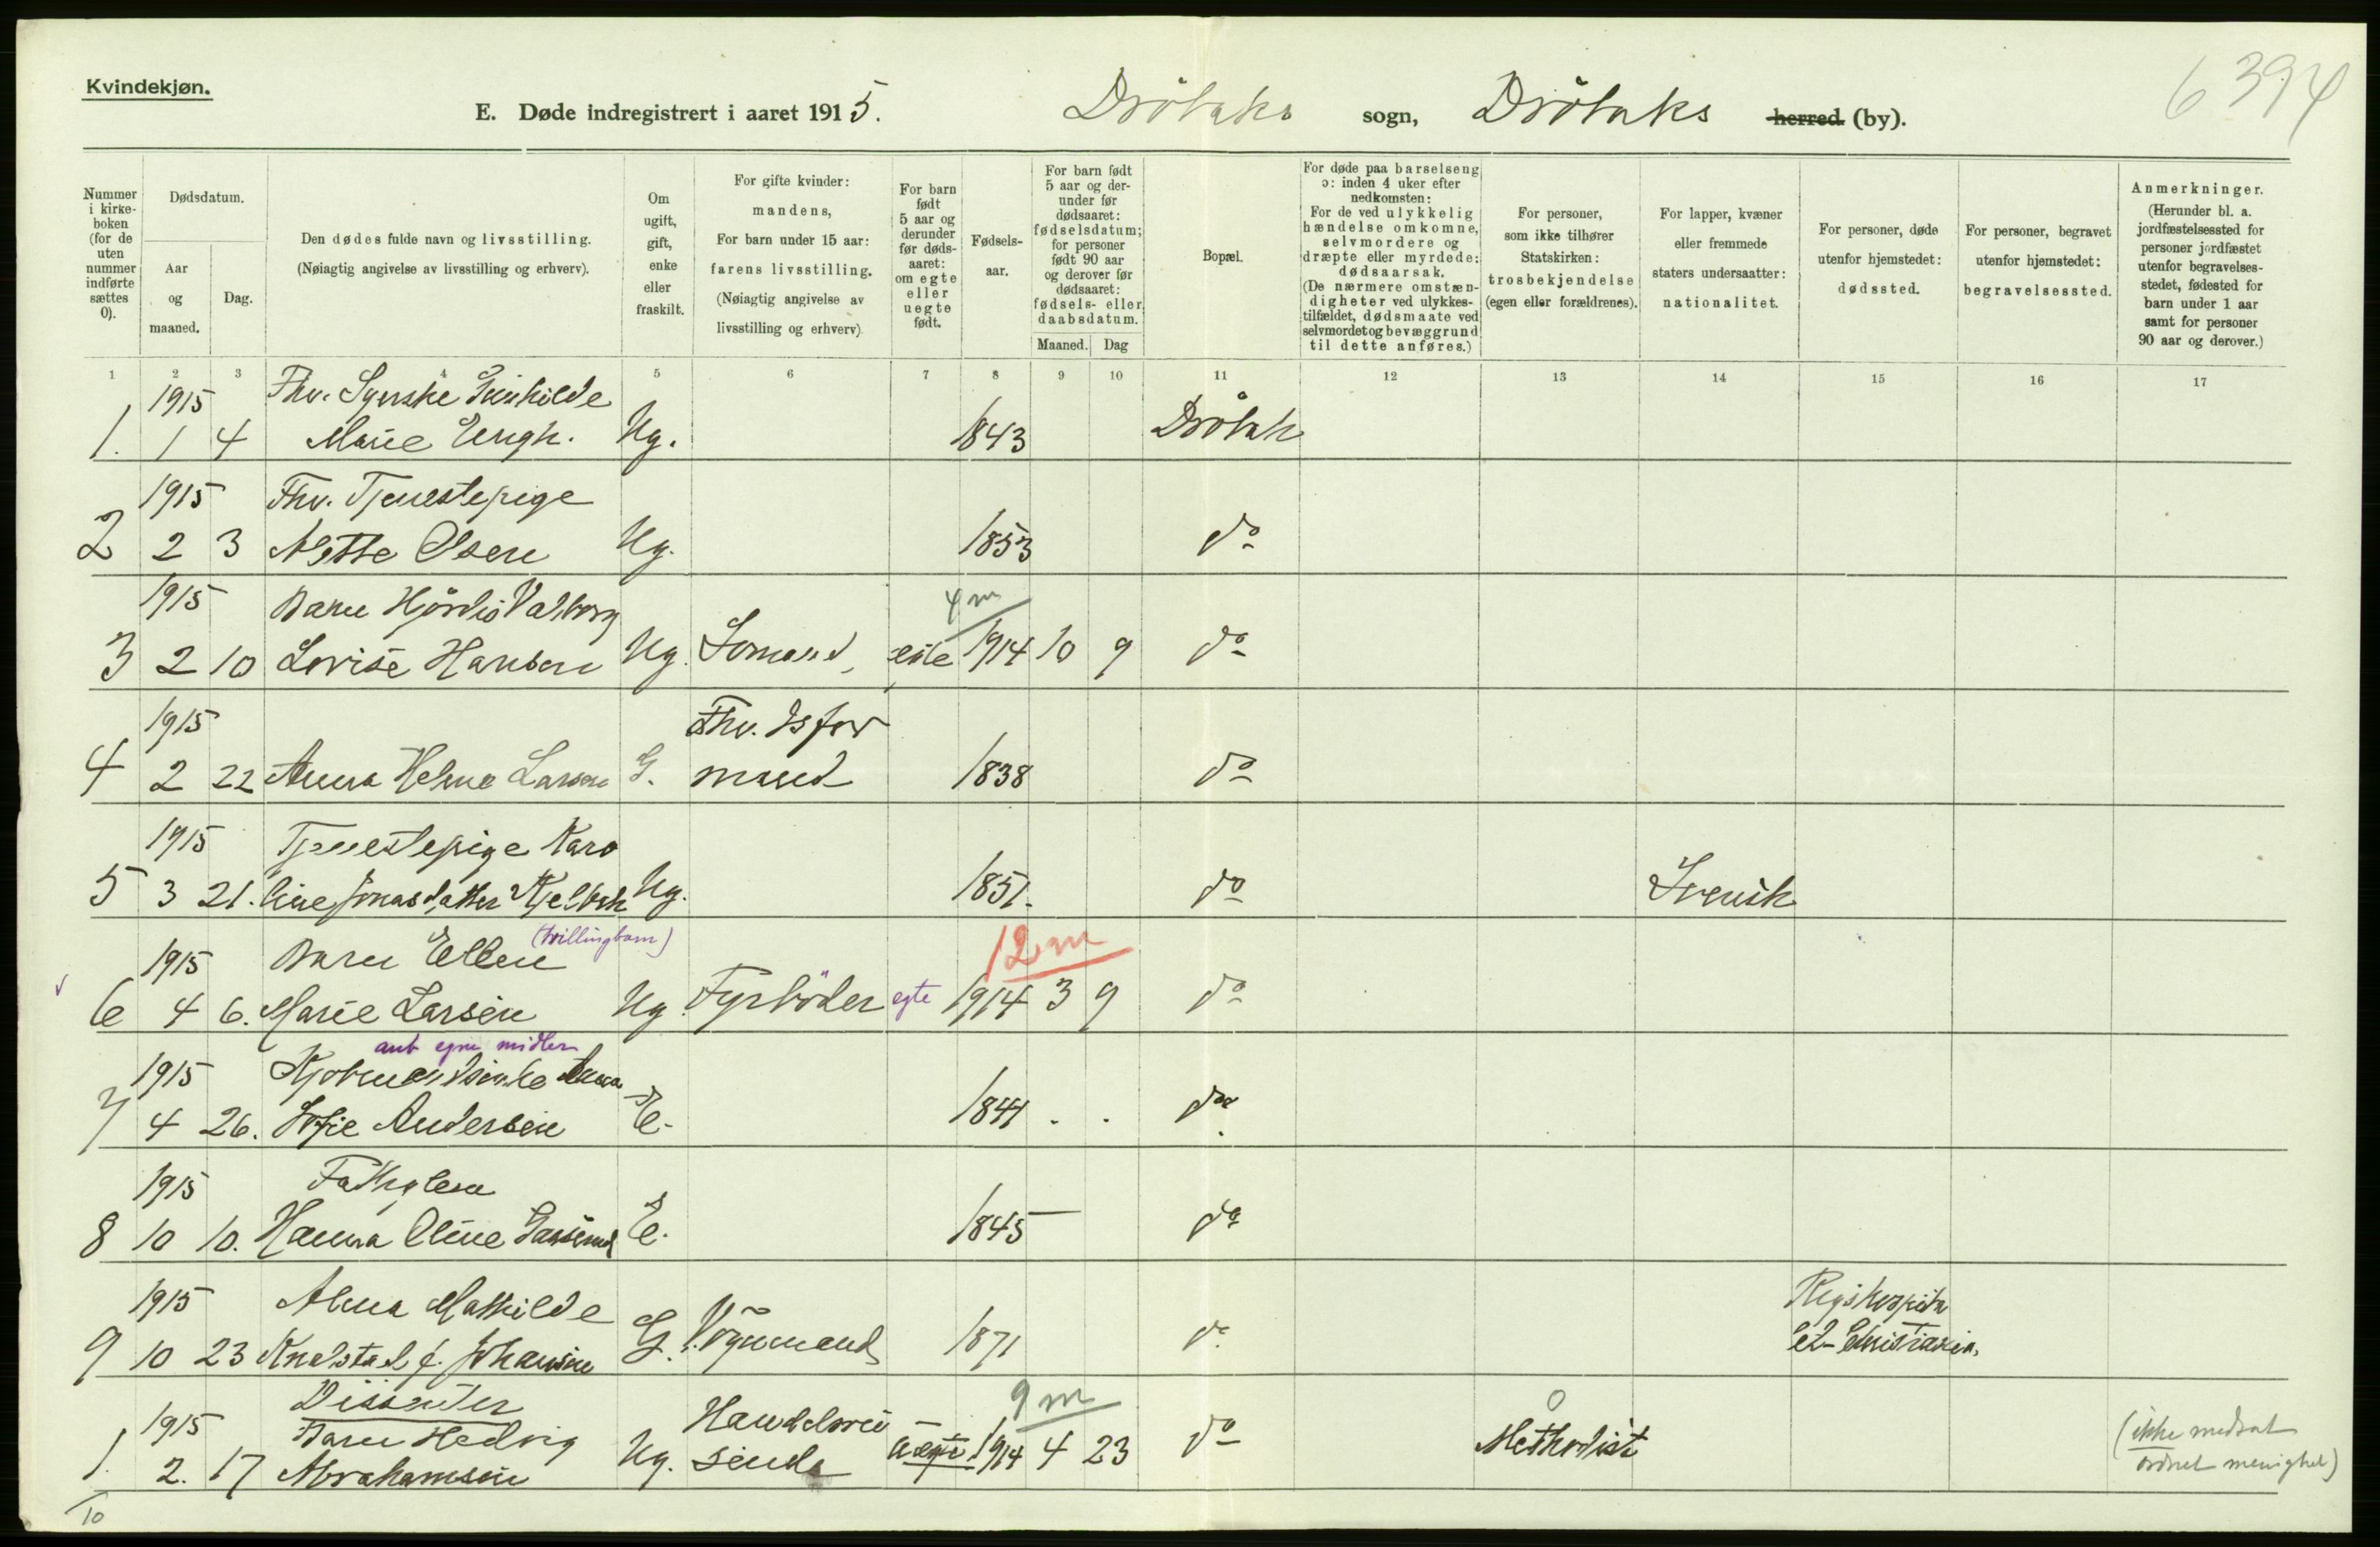 Kvindekjøn.
E. Døde indregistrert i aaret 1915. Drøbaks sogn, Drøbaks herred (by).
6394
Nummer i kirkeboken (for de uten nummer indførte sættes 0).
Dødsdatum.
Aar og maaned.
Dag.
Den dødes fulde navn og livsstilling.
(Nøiagtig angivelse av livsstilling og erhverv).
Om ugift, gift, enke eller fraskilt.
For gifte kvinder: mandens,
For barn under 15 aar: farens livsstilling.
(Nøiagtig angivelse av livsstilling og erhverv)
For barn født 5 aar og derunder før dødsaaret: om egte eller uegte født.
Fødselsaar.
For barn født 5 aar og derunder før dødsaaret: fødselsdatum; for personer født 90 aar og derover før dødsaaret: fødsels- eller daabsdatum.
Maaned.
Dag
Bopæl.
For døde paa barselseng ɔ: inden 4 uker efter nedkomsten:
For de ved ulykkelig hændelse omkomne, selvmordere og dræpte eller myrdede: dødsaarsak.
(De nærmere omstændigheter ved ulykkestilfældet, dødsmaate ved selvmordet og bevæggrund til dette anføres.)
For personer, som ikke tilhører Statskirken: trosbekjendelse (egen eller forældrenes).
For lapper, kvæner eller fremmede staters undersaatter: nationalitet.
For personer, døde utenfor hjemstedet: dødssted.
For personer, begravet utenfor hjemstedet: begravelsessted.
Anmerkninger.
(Herunder bl. a. jordfæstelsessted for personer jordfæstet utenfor begravelsesstedet, fødested for barn under 1 aar samt for personer 90 aar og derover.)
1 2 3 4 5 6 7 8 9 10 11 12 13 14 15 16 17
1915 Fhv. Syerske Gunhilde
1. 1 4 Marie Engh. Ug. 1843 Drøbak
1915 Fhv. Tjenestepige
2 2 3 Mette Olsen Ug. 1853 do
1915 Barn Hjørdis Valborg 4 m
3 2 10 Lovise Hansen Ug. Sømand, egte 1914 10 9 do
1915 Fhv. Isfor
4 2 22 Anna Helene Larsen G. mand 1838 do
1915 Tjenestepige Karo
5 3 21. line Jonasdatter Ug. 1851. do Svensk
1915 Barn Ellen (tvillingbarn) 12 m
6 4 6. Marie Larsen Ug. Fyrbøder egte 1914 3 9 do
ant egne midler
1915 Kjøbmandsenke Anna
7 4 26. Sofie Andersen E. 1841 . . do
1915 Fattiglem
8 10 10. Hanna Oline E. 1845 do
1915 Alma Mathilde Rigshospita
9 10 23 f. Johansen G. Vognmand 1871 do let Christiania.
Dissenter 9 m
1915 Barn Hedvig Handelsrei
1. 2. 17 Abrahamsen Ug. sende uegte 1914 4 23 do Methodist
(ikke medsat
ordnet menighet)
10